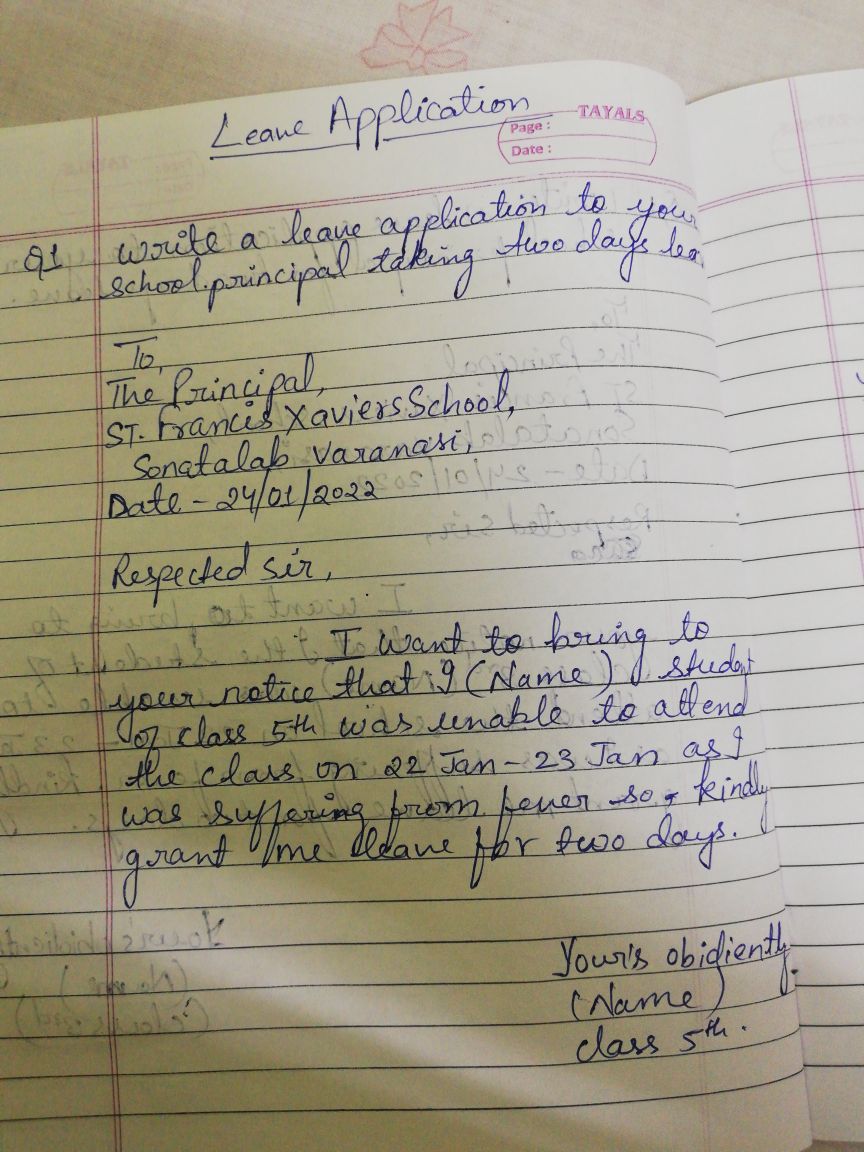 Leave Application
TAYALS
Page :
Date :
Q1 write a leave application to your
school.principal taking two days lea
To,
The Principal,
ST. Francis Xaviers School,
Sonatalab Varanasi,
Date - 24/01/2022
Respected sir,
I want to bring to
your notice that I (Name) student
of class 5th was unable to attend
the class on 22 Jan - 23 Jan as I
was suffering from fever so, kindly
grant me leave for two days.
Your's obidiently.
(Name)
class 5th.